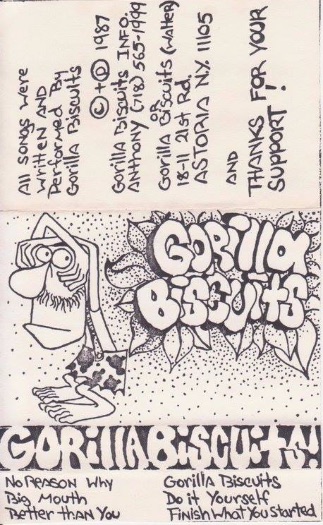 All songs were
written and
Performed By
Gorilla Biscuits
© + Ⓟ 1987
Gorilla Biscuits INFO.
Anthony (718) 565-1999
OR
Gorilla Biscuits (walter)
18-11 21st Rd.
ASTORIA N.Y. 11105
AND
THANKS FOR YOUR
SUPPORT!
GORilla
BISCUITS
GORillABiscuits!
No REASON Why
Big Mouth
Better than You
Gorilla Biscuits
Do it Yourself
Finish What You Started